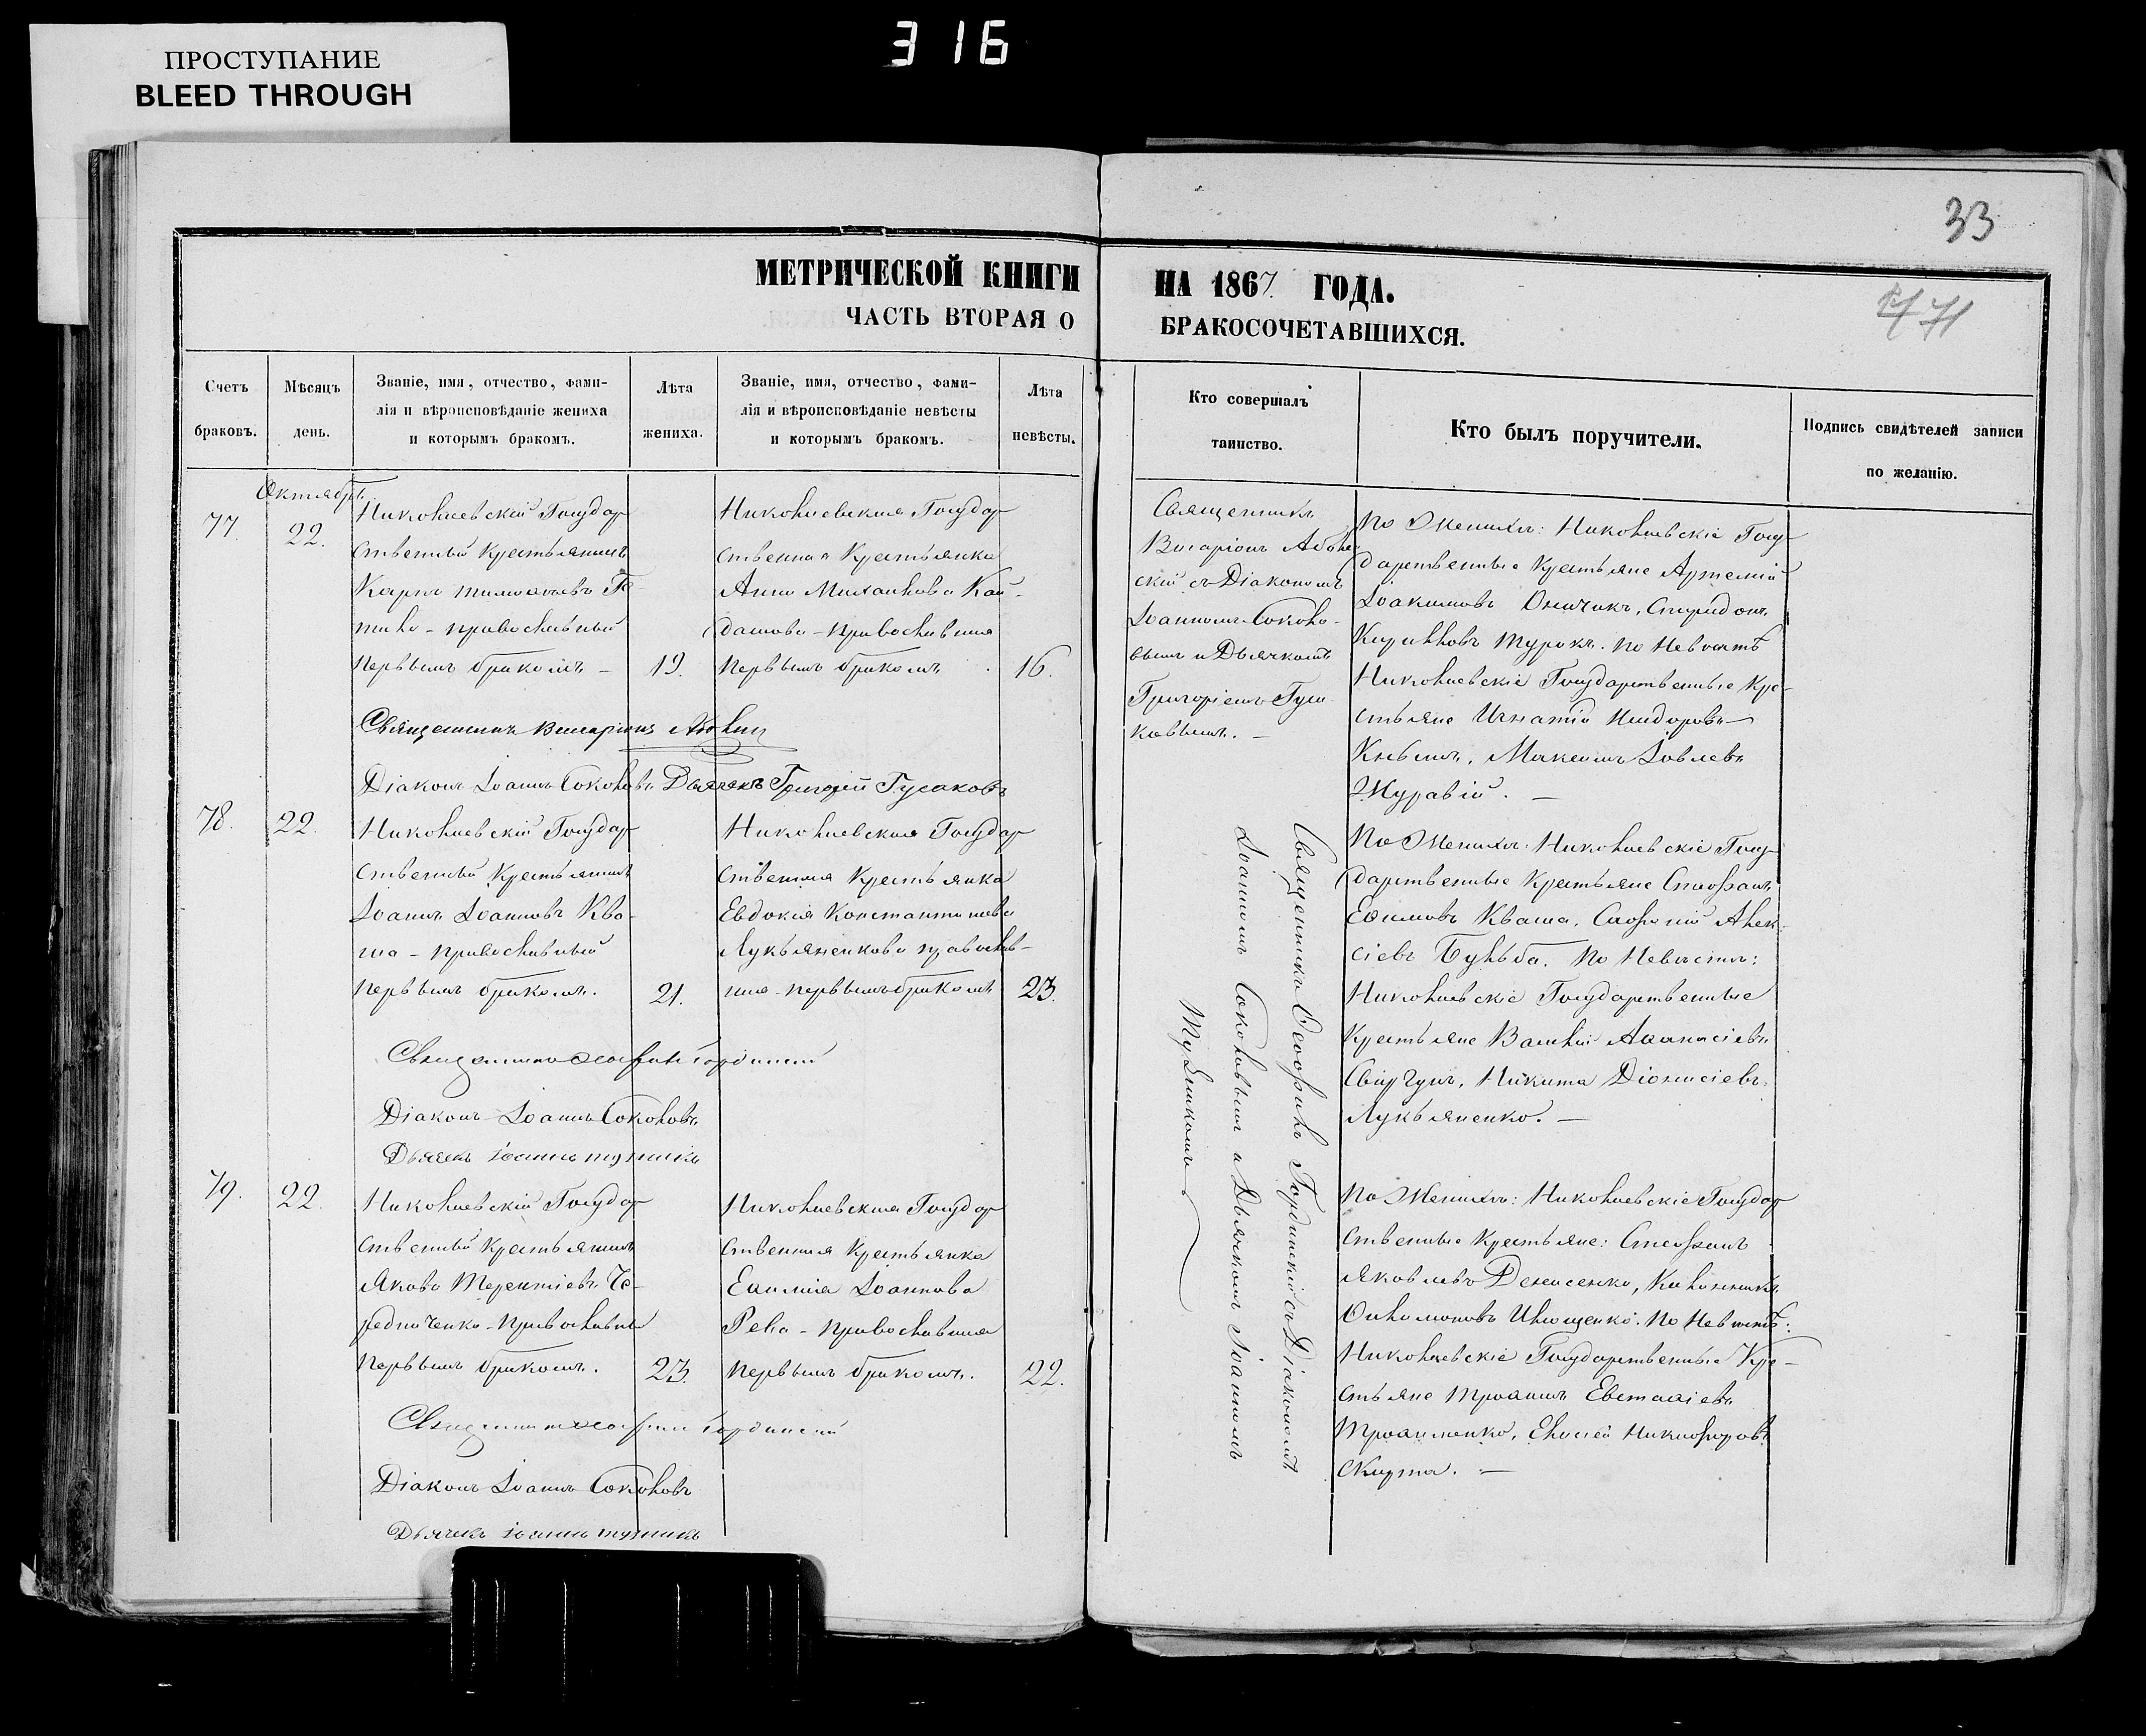 316
ПРОСТУПАНИЕ
BLEED THROUGH
33
71
МЕТРИЧЕСКОЙ КНИГИ
НА 1867 ГОДА.
ЧАСТЬ ВТОРАЯ О
БРАКОСОЧЕТАВШИХСЯ.
Счетъ браковъ.
Мѣсяцъ день.
Званіе, имя, отчество, фами-
лія и вѣроисповѣданіе жениха
и которымъ бракомъ.
Лѣта жениха.
Званіе, имя, отчество, фами-
лія и вѣроисповѣданіе невѣсты
и которымъ бракомъ.
Лѣта невѣсты.
Кто совершалъ
таинство.
Кто былъ поручители.
Подпись свидѣтелей записи
по желанію.
77.
Октябрь
22.
Николаевскій Государ
ственный Крестьянинъ
Карпъ
православный
первымъ бракомъ –
19.
Николаевская Государ
ственная Крестьянка
Анна Михаилова Кай-
дашова – православная
первымъ бракомъ
16.
Священникъ
Виссаріонъ
скій съ Діакономъ
Іоанномъ Соколо-
вымъ и Дьячкомъ
Григоріемъ Гуса-
ковымъ. –
По Женихѣ: Николаевскіе Госу-
дарственные Крестьяне Артемій
Іоакимовъ Оничикъ, Спиридонъ
Кирилловъ Турокъ. По Невѣстѣ
Николаевскіе Государственные Кре-
стьяне Игнатій Исидоровъ
Максимъ Іовлевъ
Журавій. –
Священникъ Виссаріонъ
Діаконъ Іоаннъ Соколовъ Дьячекъ Григорій Гусаковъ
78.
22.
Николаевскій Государ
ственный Крестьянинъ
Іоаннъ Іоанновъ Ква-
ша – православный
первымъ бракомъ.
21.
Николаевская Государ
ственная Крестьянка
Евдокія Константинова
Лукьяненкова православ-
ная – первымъ бракомъ
23.
Священникъ Ѳеофилъ Гординскій съ Діакономъ
Іоанномъ Соколовымъ и Дьячкомъ Іоанномъ
По Женихѣ: Николаевскіе Госу-
дарственные Крестьяне Стефанъ
Ефимовъ Кваша, Алек-
сіевъ Бульба. По Невѣстѣ:
Николаевскіе Государственные
Крестьяне Василій Аѳанасіевъ
Свиргунъ, Никита Діонисіевъ
Лукьяненко. –
Священникъ Ѳеофилъ Гординскій
Діаконъ Іоаннъ Соколовъ
Дьячекъ Іоаннъ
79.
22.
Николаевскій Государ
ственный Крестьянинъ
Яковъ Терентіевъ Че-
редниченко – Православный
первымъ бракомъ.
23.
Николаевская Государ
ственная Крестьянка
Евѳимія Іоаннова
Рева – православная
первымъ бракомъ.
22.
По Женихѣ: Николаевскіе Государ
ственные Крестьяне: Стефанъ
Яковлевъ Денисенко, Каллиникъ
Филимоновъ Ильященко. По Невѣстѣ:
Николаевскіе Государственные Кре-
стьяне Трофимъ Евстафіевъ
Трофименко, Елисей Никифоровъ
Скирта. –
Священникъ Ѳеофилъ Гординскій
Діаконъ Іоаннъ Соколовъ
Дьячекъ Іоаннъ